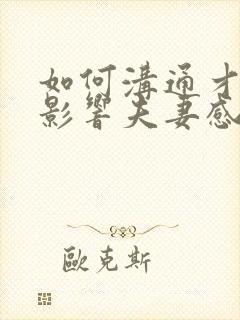 如何溝通才
影響夫妻感
歐克斯